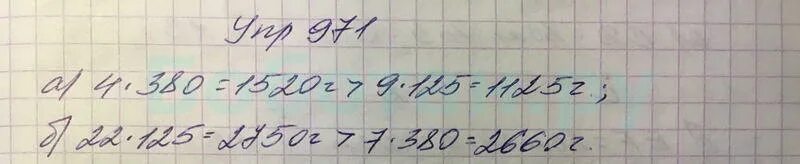 Упр 971
а) 4·380=1520г > 9·125=1125г.;
б) 22·125=2750г > 7·380=2660г.